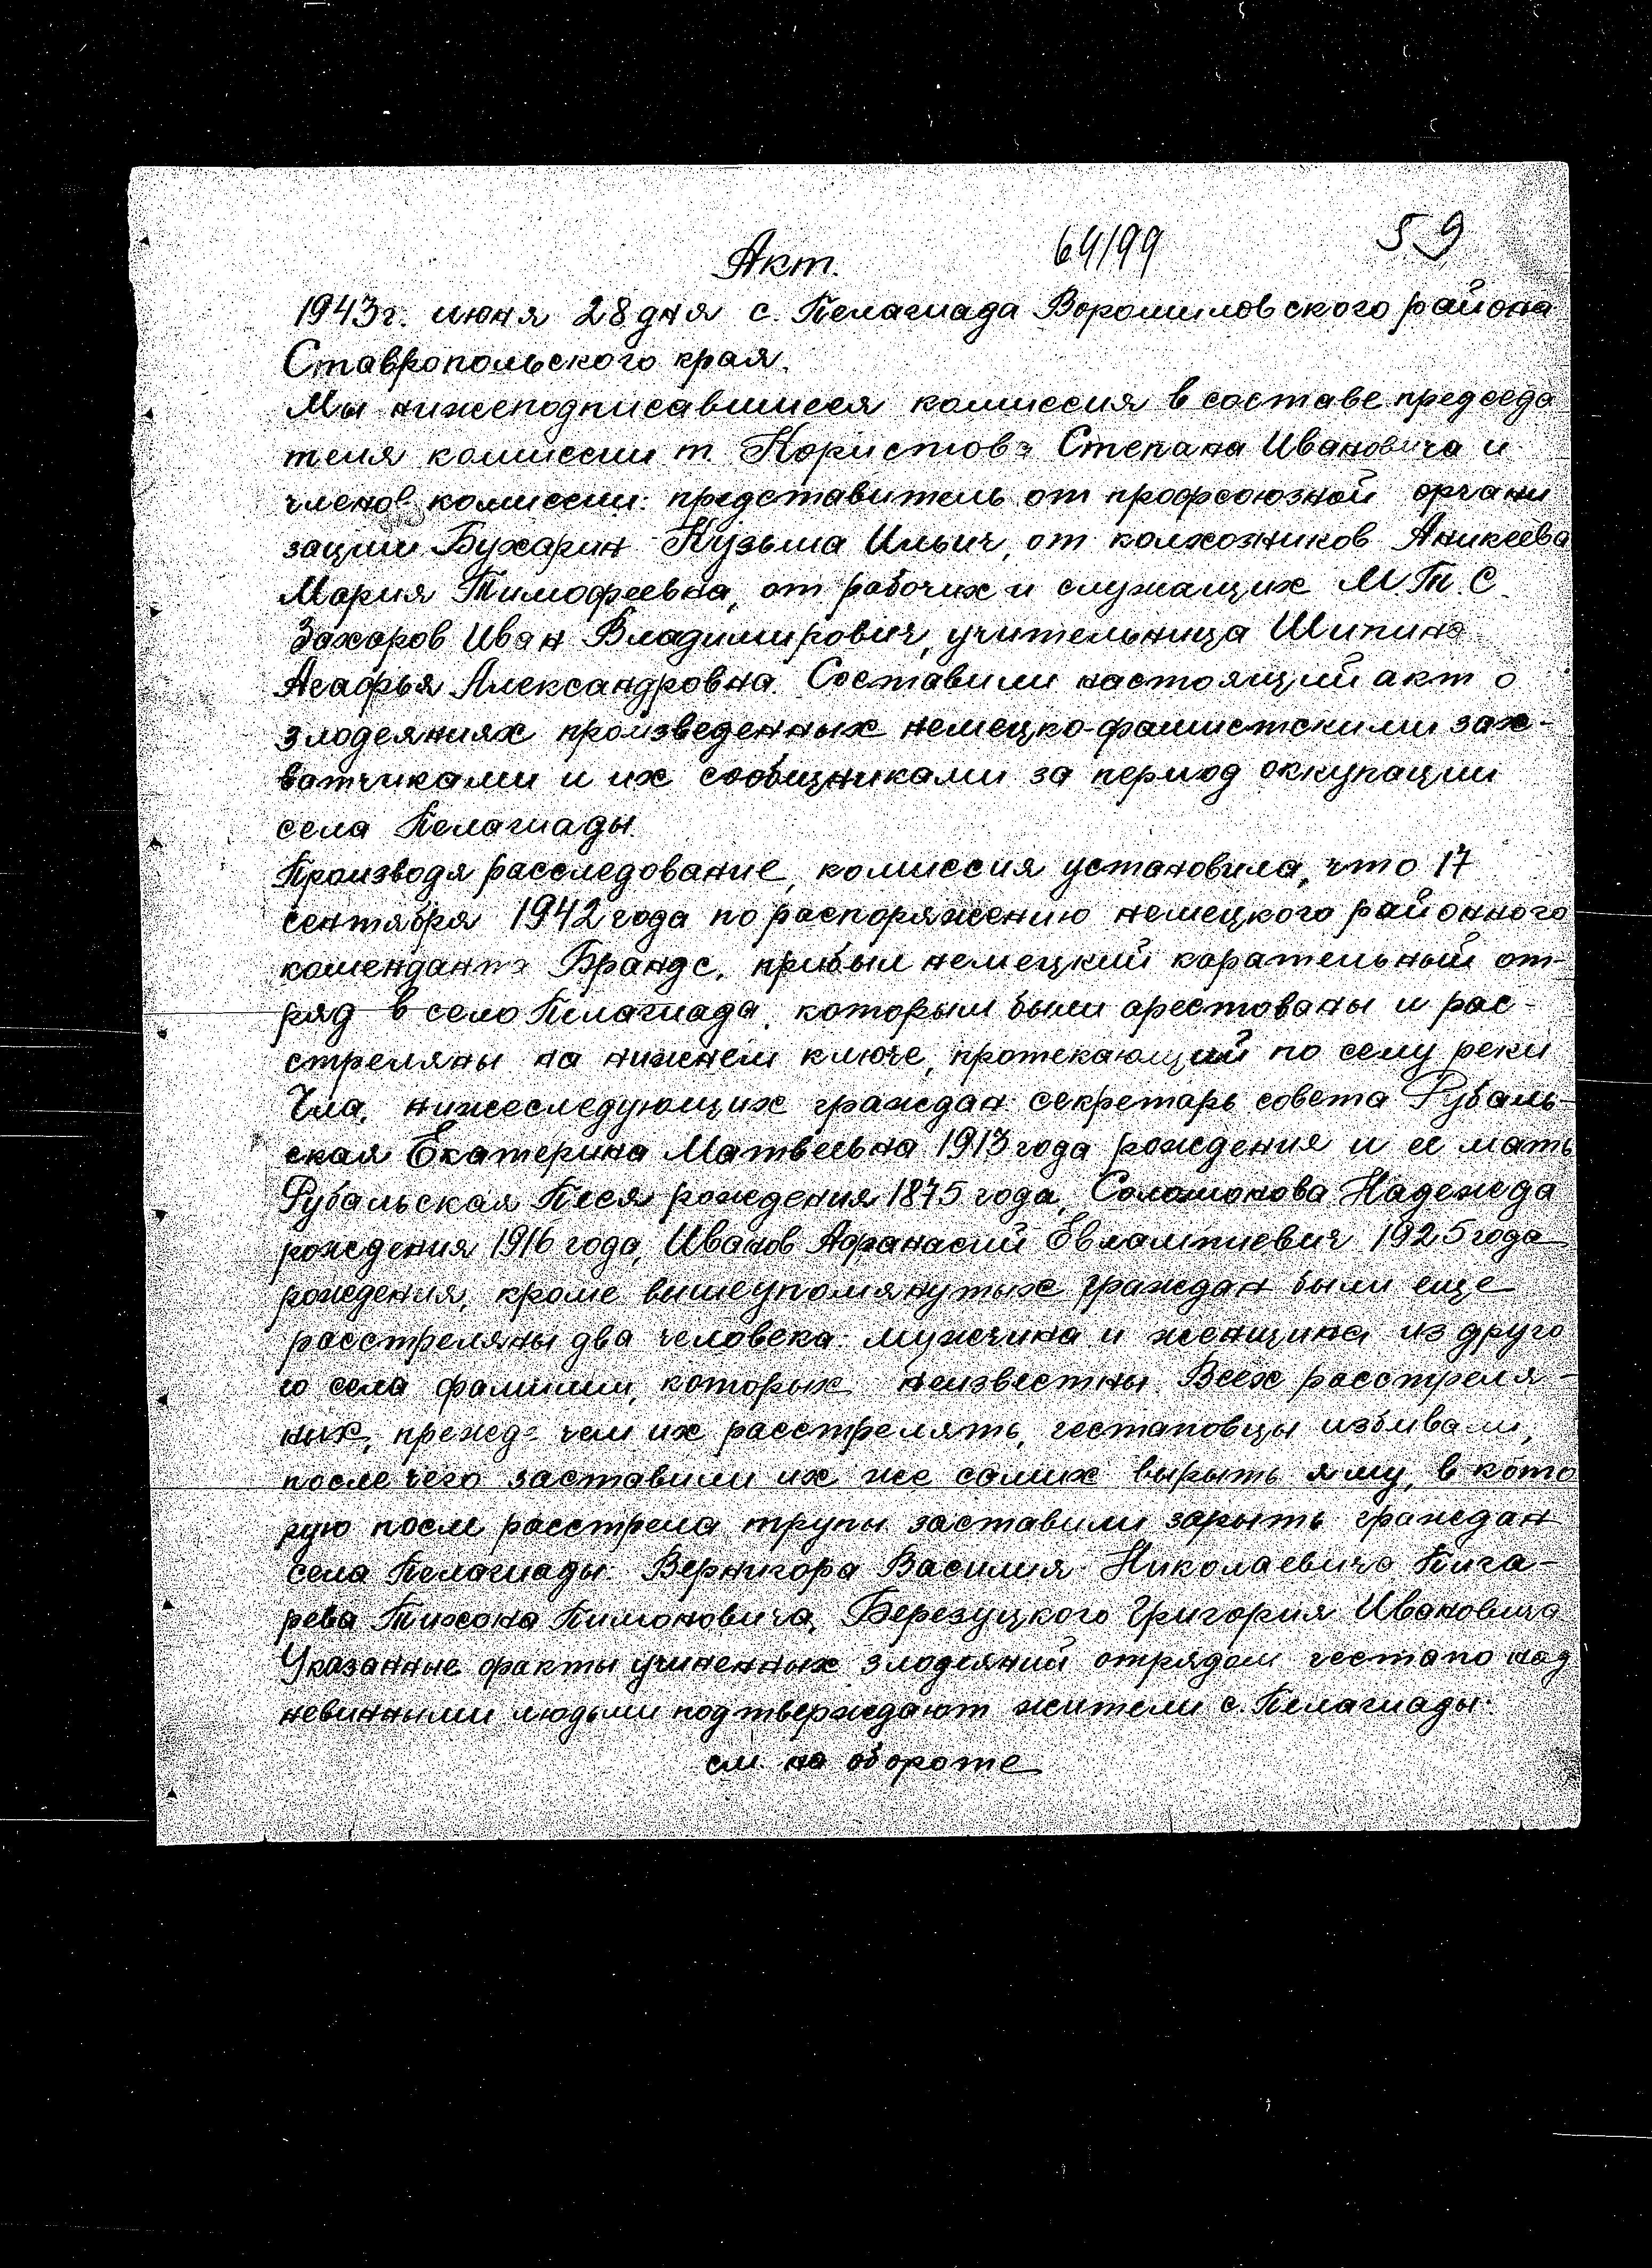 Акт.
64/99
59
1943г. июня 28 дня с. Пелагиада Ворошиловского района
Ставропольского края.
Мы нижеподписавшиеся комиссия в составе председа
теля комиссии т. Користова Степана Ивановича и
членов комиссии: представитель от профсоюзной органи
зации Бухарин Кузьма Ильич, от колхозников Аникеева
Мария Тимофеевна, от рабочих и служащих М.Т.С.
Захаров Иван Владимирович, учительница Шипина
Агафья Александровна. Составили настоящий акт о
злодеяниях произведенных немецко-фашистскими зах-
ватчиками и их сообщниками за период оккупации
села Пелагиады.
Производя расследование, комиссия установила, что 17
сентября 1942 года по распоряжению немецкого районного
коменданта Брандс, прибыл немецкий карательный от-
ряд в село Пелагиада, которым были арестованы и рас-
стреляны на нижнем ключе, протекающий по селу реки
Чла, нижеследующих граждан: секретарь совета Рубаль-
ская Екатерина Матвеевна 1913 года рождения и ее мать
Рубальская Песя рождения 1875 года, Соломонова Надежда
рождения 1916 года, Иванов Афанасий Евлампиевич 1925 года
рождения, кроме вышеупомянутых граждан были еще
расстреляны два человека: мужчина и женщина из друго
го села фамилии, которых неизвестны. Всех расстреля-
ных, прежде чем их расстрелять, гестаповцы избивали,
после чего заставили их же самих вырыть яму, в кото
рую после расстрела трупы заставили зарыть граждан
села Пелагиады: Вернигора Василия Николаевича Пига-
рева Тихона Пимоновича, Березуцкого Григория Ивановича
Указанные факты учиненных злодеяний отрядом гестапо над
невинными людьми подтверждают жители с. Пелагиады:
см. на обороте